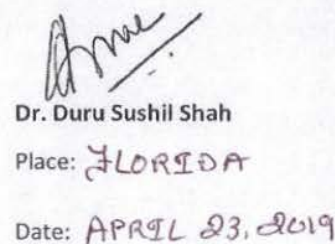 Dr. Duru Sushil Shah
Place: FLORIDA
Date: APRIL 23, 2019